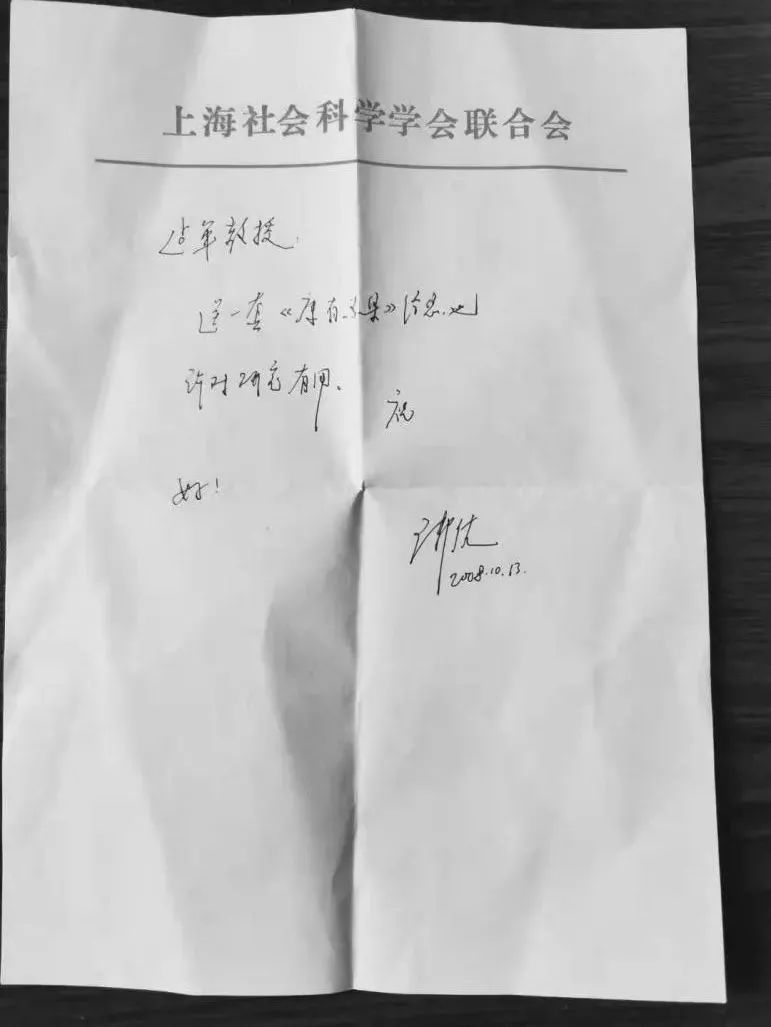 上海社会科学学会联合会
军教授:
送一套《康有为集》给您,也
许对研究有用。
祝
好!
王邦佐
2008.10.13.